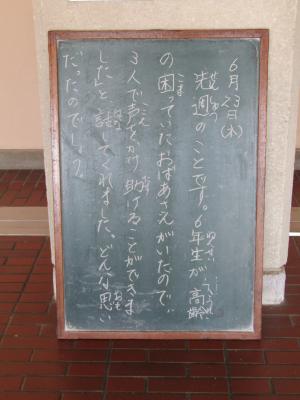 6月23日(木)
先週のことです。6年生が、高齢
の困っていたおばあさんがいたので、
3人で声をかけ助けることができま
した」と話してくれました。どんな思い
だったのでしょう。